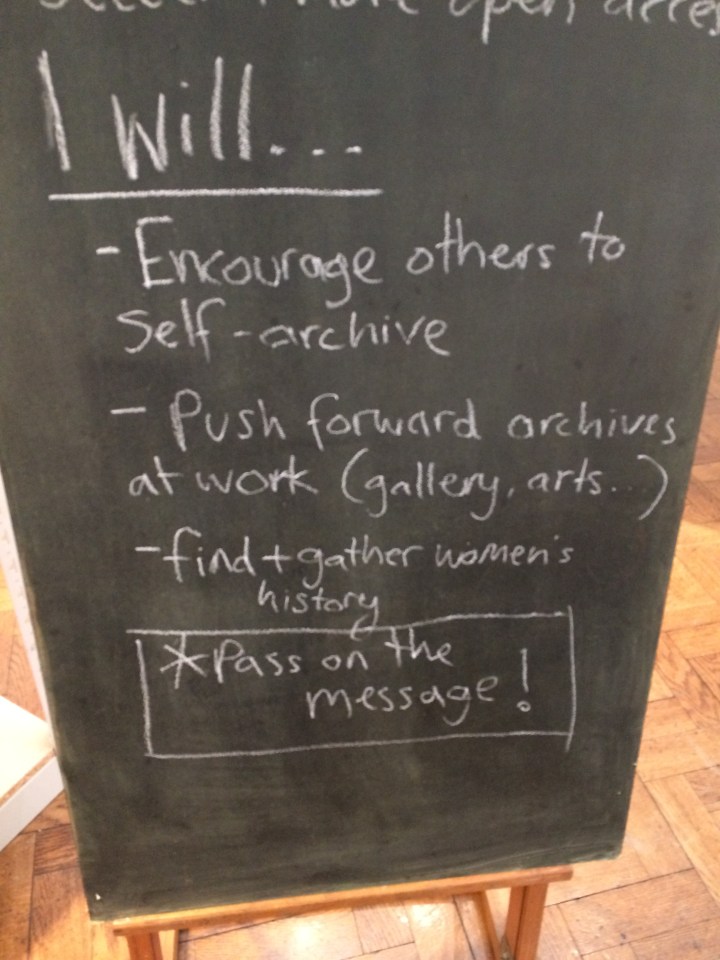 more open
I Will...
- Encourage others to
Self-archive
- Push forward archives
at work (gallery, arts...)
- find + gather women's
history
*Pass on the
message!